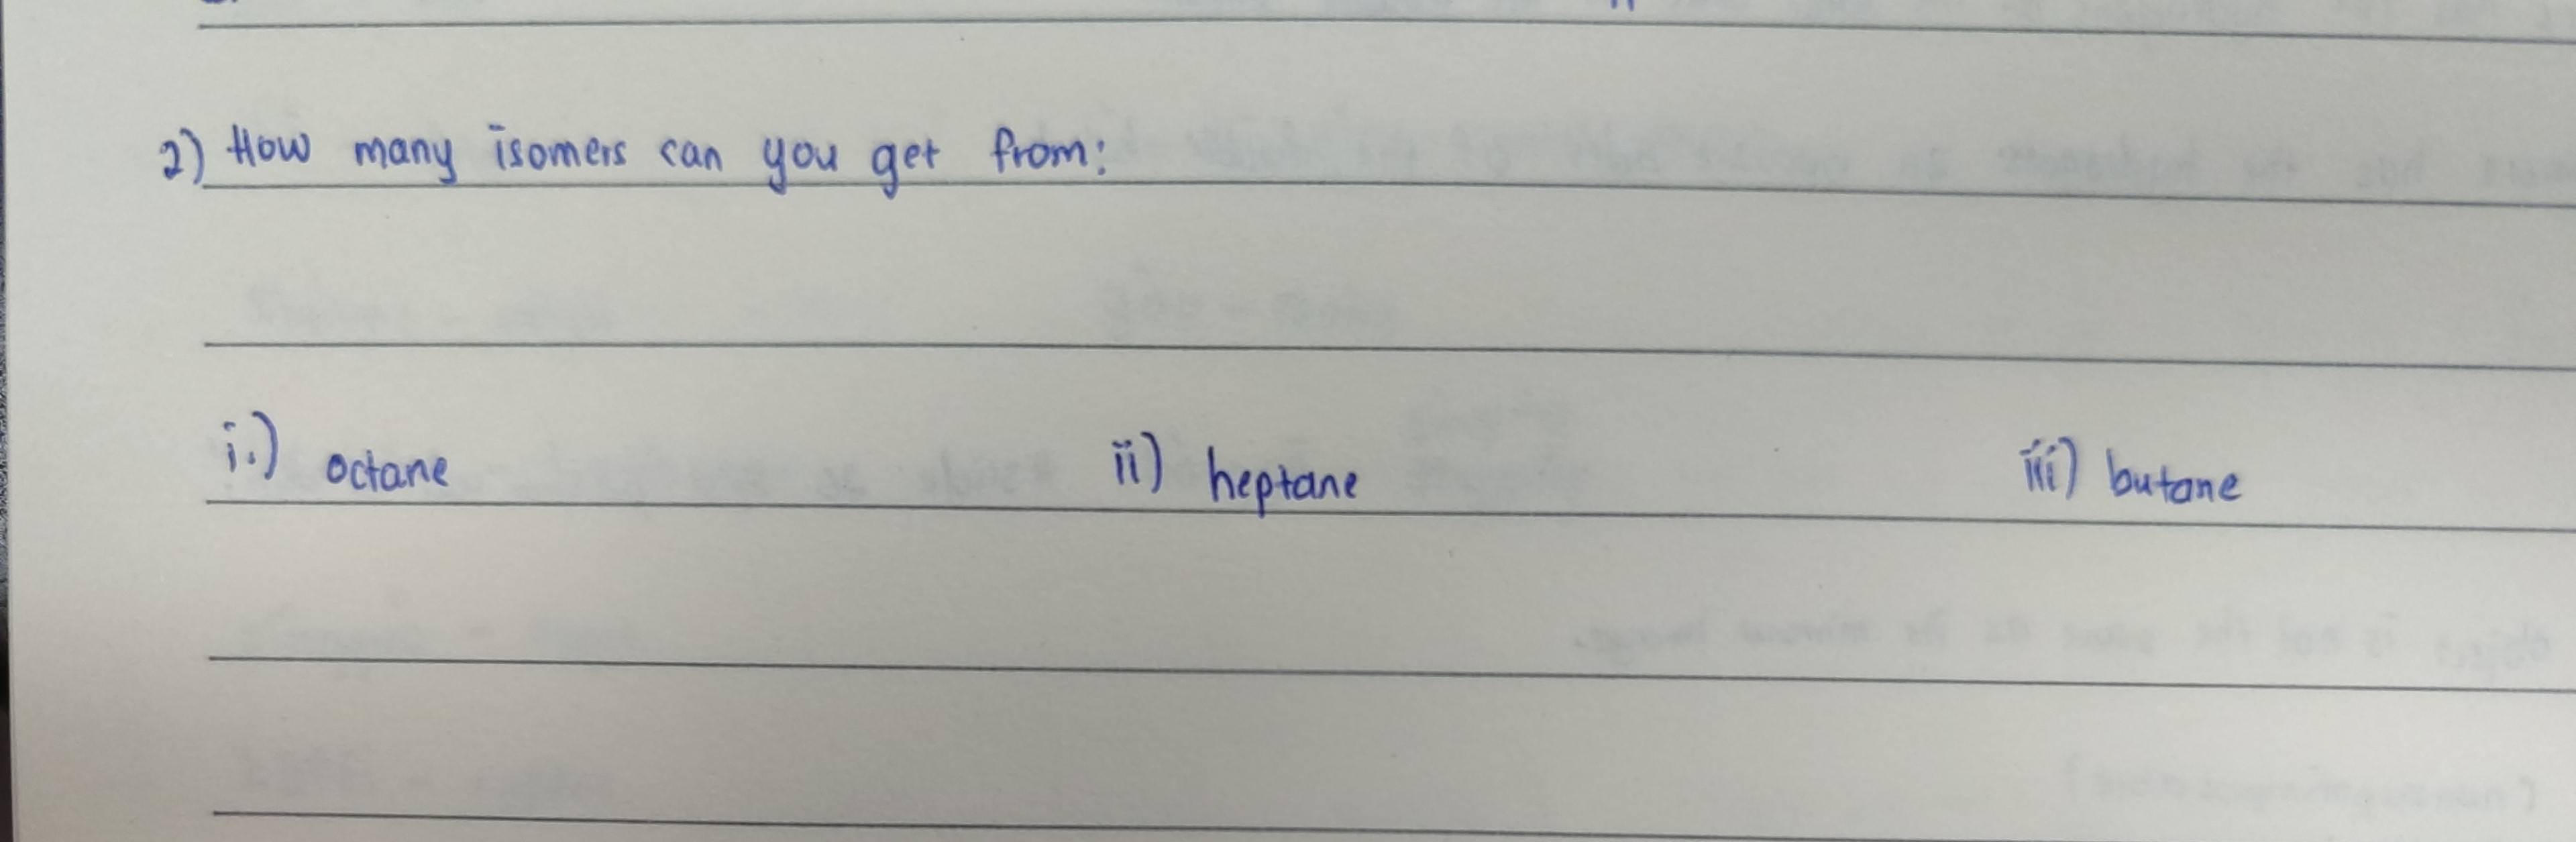 2) How many isomers can you get from:
i.) octane ii) heptane iii) butane